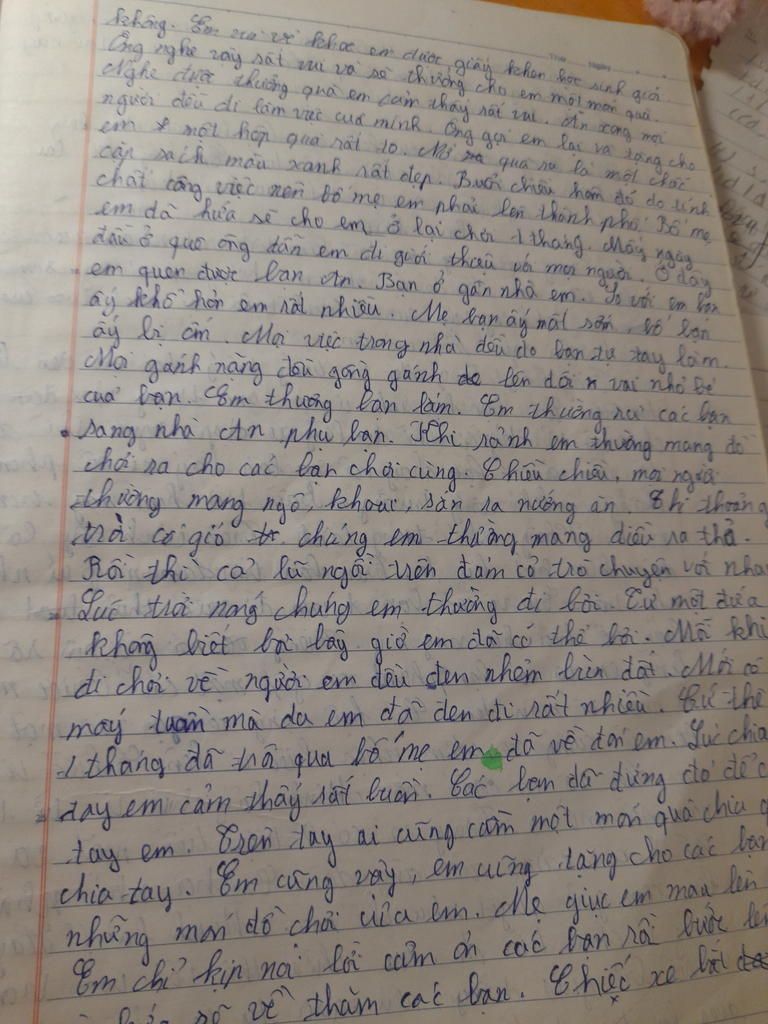 không. Em vui vẻ khoe em được giấy khen học sinh giỏi.
Ông nghe vậy rất vui và sẽ thưởng cho em một món quà.
Nghe được thưởng quà em cảm thấy rất vui. Ăn xong mọi
người đều đi làm việc của mình. Ông gọi em lại và tặng cho
em một hộp quà rất to. Mở quà ra là một chiếc
cặp sách màu xanh rất đẹp. Buổi chiều hôm đó do tính
chất công việc nên bố mẹ em phải lên thành phố. Bố mẹ
em đã hứa sẽ cho em ở lại chơi 1 tháng. Mấy ngày
đầu ở quê ông dẫn em đi giới thiệu với mọi người. Ở đây
em quen được bạn An. Bạn ở gần nhà em. So với em bạn
ấy khổ hơn em rất nhiều. Mẹ bạn ấy mất sớm, bố bạn
ấy bị ốm. Mọi việc trong nhà đều do bạn tự tay làm.
Mọi gánh nặng đều gồng gánh lên đôi vai nhỏ bé
của bạn. Em thương bạn lắm. Em thường rủ các bạn
sang nhà An phụ bạn. Khi rảnh em thường mang đồ
chơi ra cho các bạn chơi cùng. Chiều chiều, mọi người
thường mang ngô, khoai, sắn ra nướng ăn. Thi thoảng
trời có gió chúng em thường mang diều ra thả.
Rồi thì cả lũ ngồi trên đám cỏ trò chuyện với nhau
Lúc trời nóng chúng em thường đi bơi. Từ một đứa
không biết bơi bây giờ em đã có thể bơi. Mỗi khi
đi chơi về người em đều đen nhẻm bùn đất. Mới có
mấy tuần mà da em đã đen đi rất nhiều. Cứ thế
1 tháng đã trôi qua bố mẹ em đã về đón em. Lúc chia
tay em cảm thấy rất buồn. Các bạn đã đứng đó để c
tay em. Trên tay ai cũng cầm một món quà chia
chia tay. Em cũng vậy, em cũng tặng cho các bạn
những món đồ chơi của em. Mẹ giục em mau lên
Em chỉ kịp nói lời cảm ơn các bạn rồi bước lên
hứa sẽ về thăm các bạn. Chiếc xe bắt